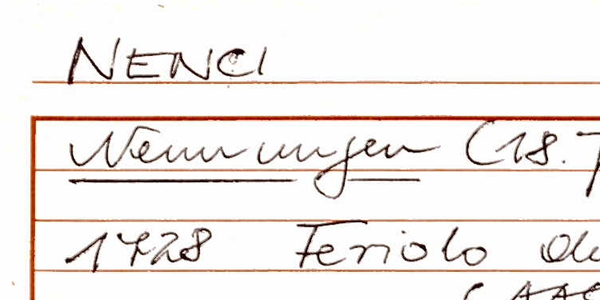 NENCI
Nennungen (18.
1728 Feriolo